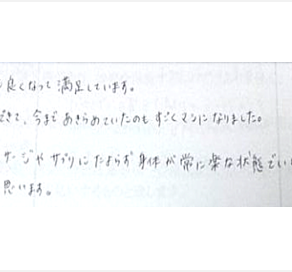 良くなって満足しています。
できて、今まであきらめていたのもすごくマシになりました。
サージやサプリにたよらず身体が常に楽な状態でい
思います。